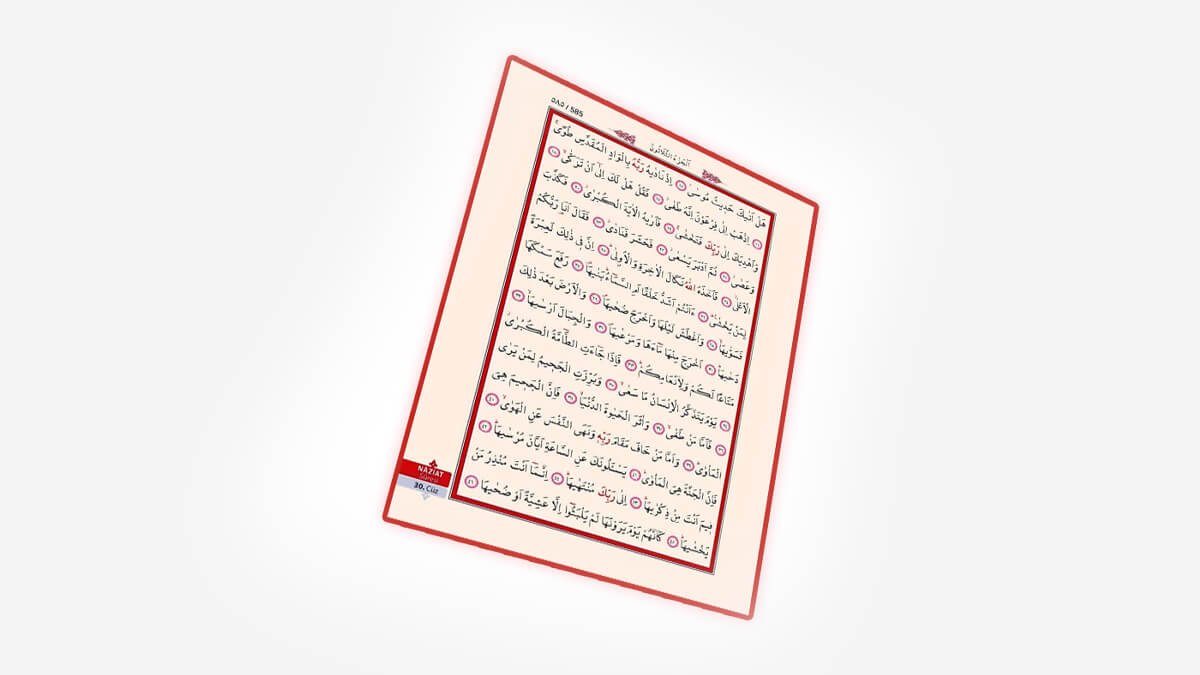 ٥٨٥ / 585
اَلْجُزْءُ الثَّلَاثُونَ
هَلْ اَتٰيكَ حَدٖيثُ مُوسٰىۘ ١٥ اِذْ نَادٰيهُ رَبُّهُ بِالْوَادِ الْمُقَدَّسِ طُوًىۚ
١٦ اِذْهَبْ اِلٰى فِرْعَوْنَ اِنَّهُ طَغٰىۘ ١٧ فَقُلْ هَلْ لَكَ اِلٰٓى اَنْ تَزَكّٰىۙ ١٨
وَاَهْدِيَكَ اِلٰى رَبِّكَ فَتَخْشٰىۚ ١٩ فَاَرٰيهُ الْاٰيَةَ الْكُبْرٰىۘ ٢٠ فَكَذَّبَ
وَعَصٰىۘ ٢١ ثُمَّ اَدْبَرَ يَسْعٰىۘ ٢٢ فَحَشَرَ فَنَادٰىۘ ٢٣ فَقَالَ اَنَا۬ رَبُّكُمُ
الْاَعْلٰىۘ ٢٤ فَاَخَذَهُ اللّٰهُ نَكَالَ الْاٰخِرَةِ وَالْاُو۫لٰىۜ ٢٥ اِنَّ فٖى ذٰلِكَ لَعِبْرَةً
لِمَنْ يَخْشٰىۜ ٢٦ ءَاَنْتُمْ اَشَدُّ خَلْقًا اَمِ السَّمَٓاءُۜ بَنٰيهَاۘ ٢٧ رَفَعَ سَمْكَهَا
فَسَوّٰيهَاۙ ٢٨ وَاَغْطَشَ لَيْلَهَا وَاَخْرَجَ ضُحٰيهَاۖ ٢٩ وَالْاَرْضَ بَعْدَ ذٰلِكَ
دَحٰيهَاۜ ٣٠ اَخْرَجَ مِنْهَا مَٓاءَهَا وَمَرْعٰيهَاۖ ٣١ وَالْجِبَالَ اَرْسٰيهَاۙ ٣٢
مَتَاعًا لَكُمْ وَلِاَنْعَامِكُمْۜ ٣٣ فَاِذَا جَٓاءَتِ الطَّٓامَّةُ الْكُبْرٰىۘ
٣٤ يَوْمَ يَتَذَكَّرُ الْاِنْسَانُ مَا سَعٰىۙ ٣٥ وَبُرِّزَتِ الْجَحٖيمُ لِمَنْ يَرٰى
٣٦ فَاَمَّا مَنْ طَغٰىۙ ٣٧ وَاٰثَرَ الْحَيٰوةَ الدُّنْيَاۙ ٣٨ فَاِنَّ الْجَحٖيمَ هِىَ
الْمَاْوٰىۜ ٣٩ وَاَمَّا مَنْ خَافَ مَقَامَ رَبِّهٖ وَنَهَى النَّفْسَ عَنِ الْهَوٰىۙ ٤٠
فَاِنَّ الْجَنَّةَ هِىَ الْمَاْوٰىۜ ٤١ يَسْـَٔلُونَكَ عَنِ السَّاعَةِ اَيَّانَ مُرْسٰيهَاۜ ٤٢
فٖيمَ اَنْتَ مِنْ ذِكْرٰيهَاۜ ٤٣ اِلٰى رَبِّكَ مُنْتَهٰيهَاۜ ٤٤ اِنَّمَٓا اَنْتَ مُنْذِرُ مَنْ
يَخْشٰيهَاۜ ٤٥ كَاَنَّهُمْ يَوْمَ يَرَوْنَهَا لَمْ يَلْبَثُٓوا اِلَّا عَشِيَّةً اَوْ ضُحٰيهَا ٤٦
NAZİAT
Sûresi
30. Cüz